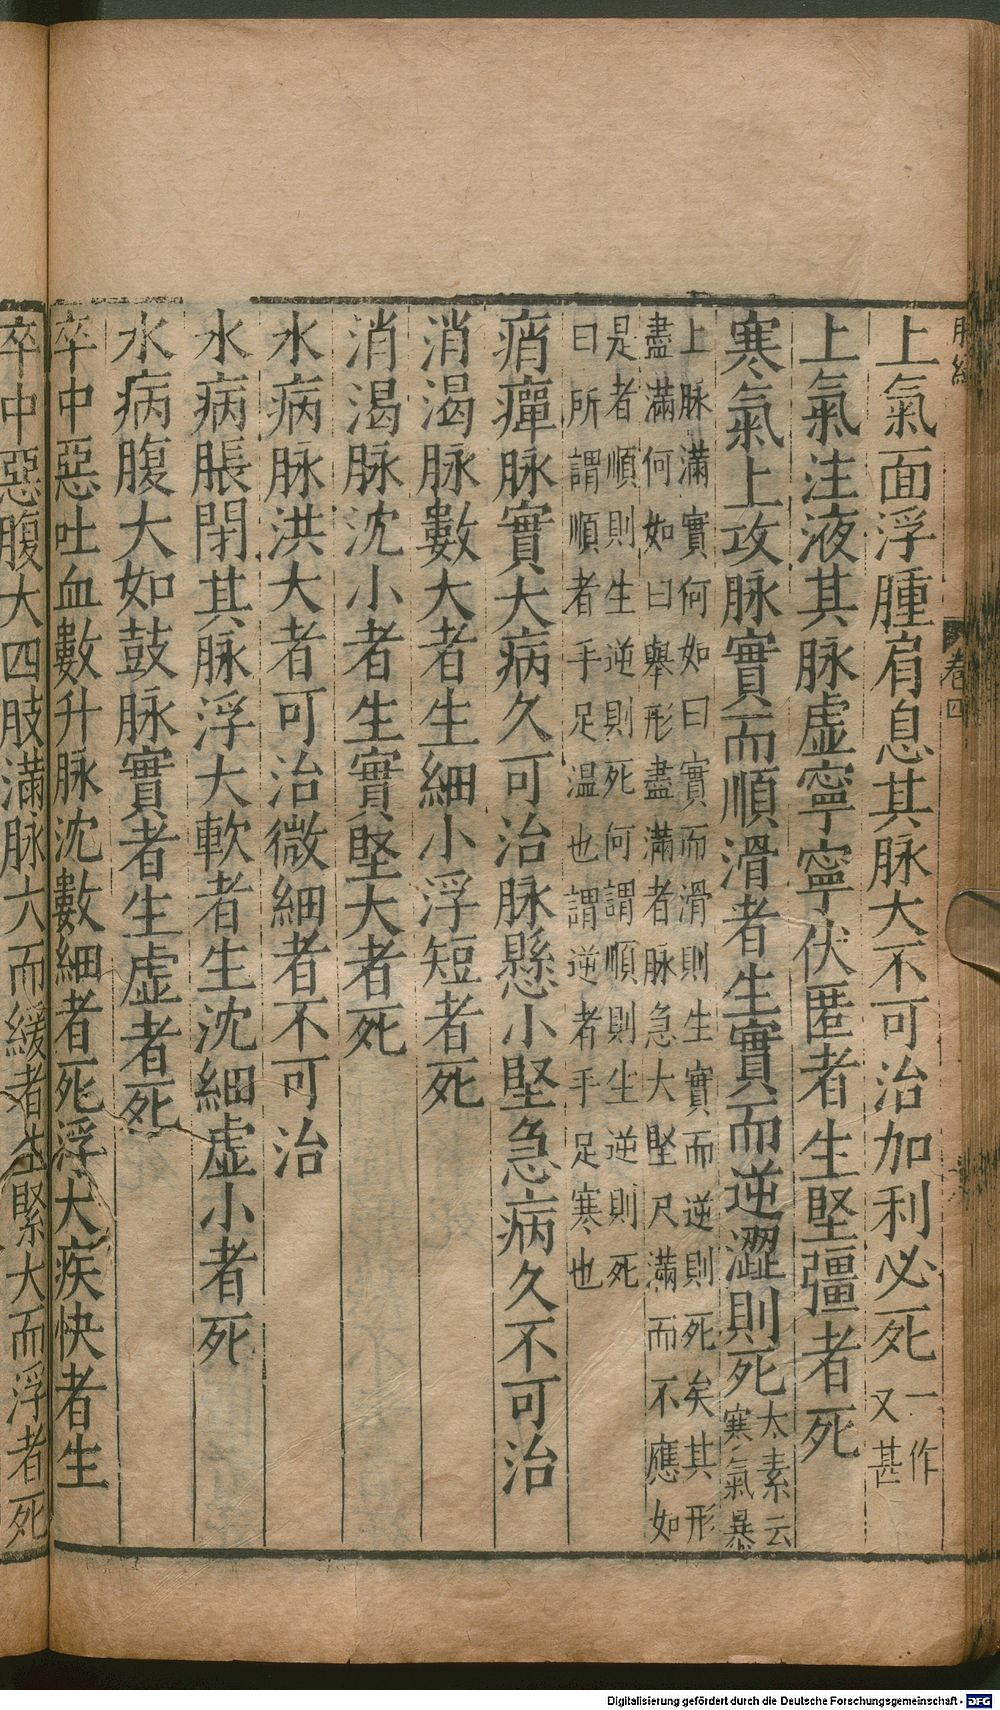 上氣面浮腫肩息其脉大不可治加利必死一作又甚
上氣注液其脉虛寧寧伏匿者生堅彊者死
寒氣上攻脉實而順滑者生實而逆澀則死太素云寒氣暴
上脉滿實何如曰實而滑則生實而逆則死矣其形
盡滿何如曰舉形盡滿者脉急大堅尺滿而不應如
是者順則生逆則死何謂順則生逆則死
曰所謂順者手足温也謂逆者手足寒也
痟癉脉實大病久可治脉懸小堅急病久不可治
消渴脉數大者生細小浮短者死
消渴脉沈小者生實堅大者死
水病脉洪大者可治微細者不可治
水病脹閉其脉浮大軟者生沈細虛小者死
水病腹大如鼓脉實者生虛者死
卒中惡吐血數升脉沈數細者死浮大疾快者生
卒中惡腹大四肢滿脉大而緩者生緊大而浮者死
卷四
Digitalisierung gefördert durch die Deutsche Forschungsgemeinschaft - DFG